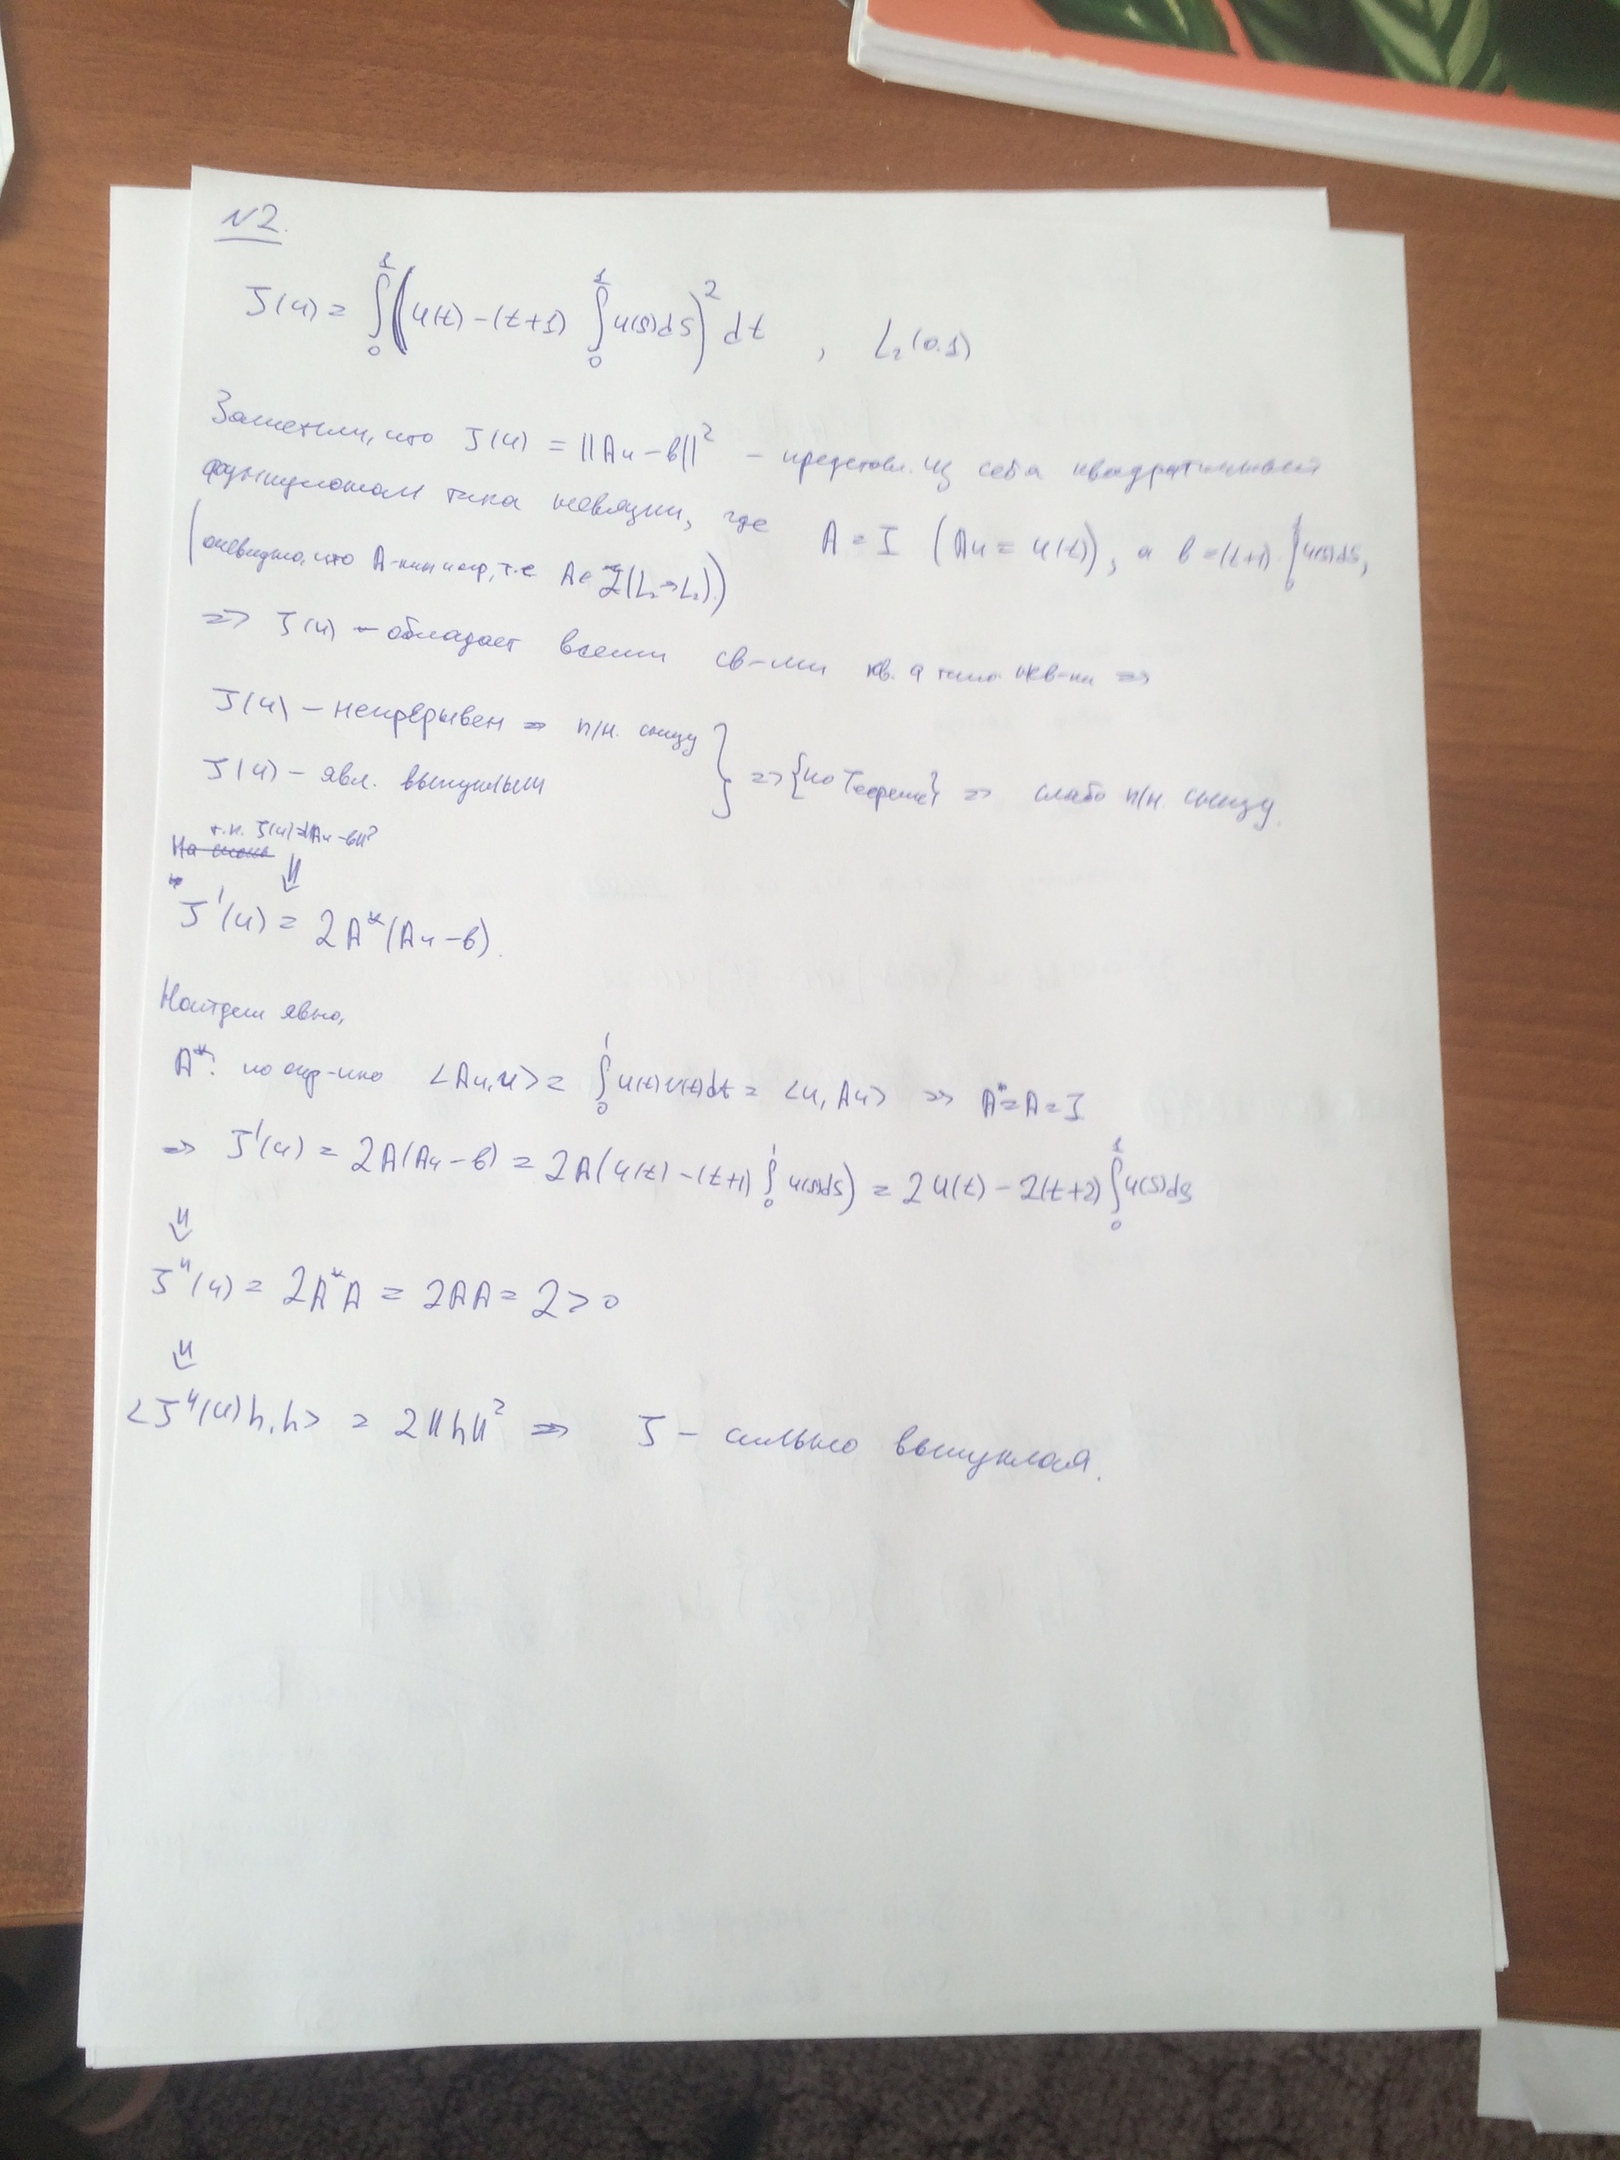 N2.
J(u) = ∫₀¹ (u(t) - (t+1) ∫₀¹ u(s)ds)² dt , L₂(0.1)
Заметим, что J(u) = ||Au - b||² - представл. из себя квадратичный
функционал типа невязки, где A = I (Au = u(t)), а b = (t+1) ∫₀¹ u(s)ds,
(очевидно, что A - лин и огр, т.е A ∈ ℒ(L₂→L₂))
=> J(u) - обладает всеми св-ми кв. =>
J(u) - непрерывен => п/н. снизу
J(u) - явл. выпуклым } => {по Теореме} => слабо п/н. снизу.
т.к. J(u)=||Au-b||²
⇓
J'(u) = 2A*(Au - b).
Найдем явно,
A*: по опр-нию <Au, u> = ∫₀¹ u(t)u(t)dt = <u, Au> => A*=A=I
=> J'(u) = 2A(Au - b) = 2A(u(t) - (t+1) ∫₀¹ u(s)ds) = 2u(t) - 2(t+2) ∫₀¹ u(s)ds
⇓
J''(u) = 2A*A = 2AA = 2 > 0
⇓
<J''(u)h,h> = 2||h||² => J - сильно выпуклая.